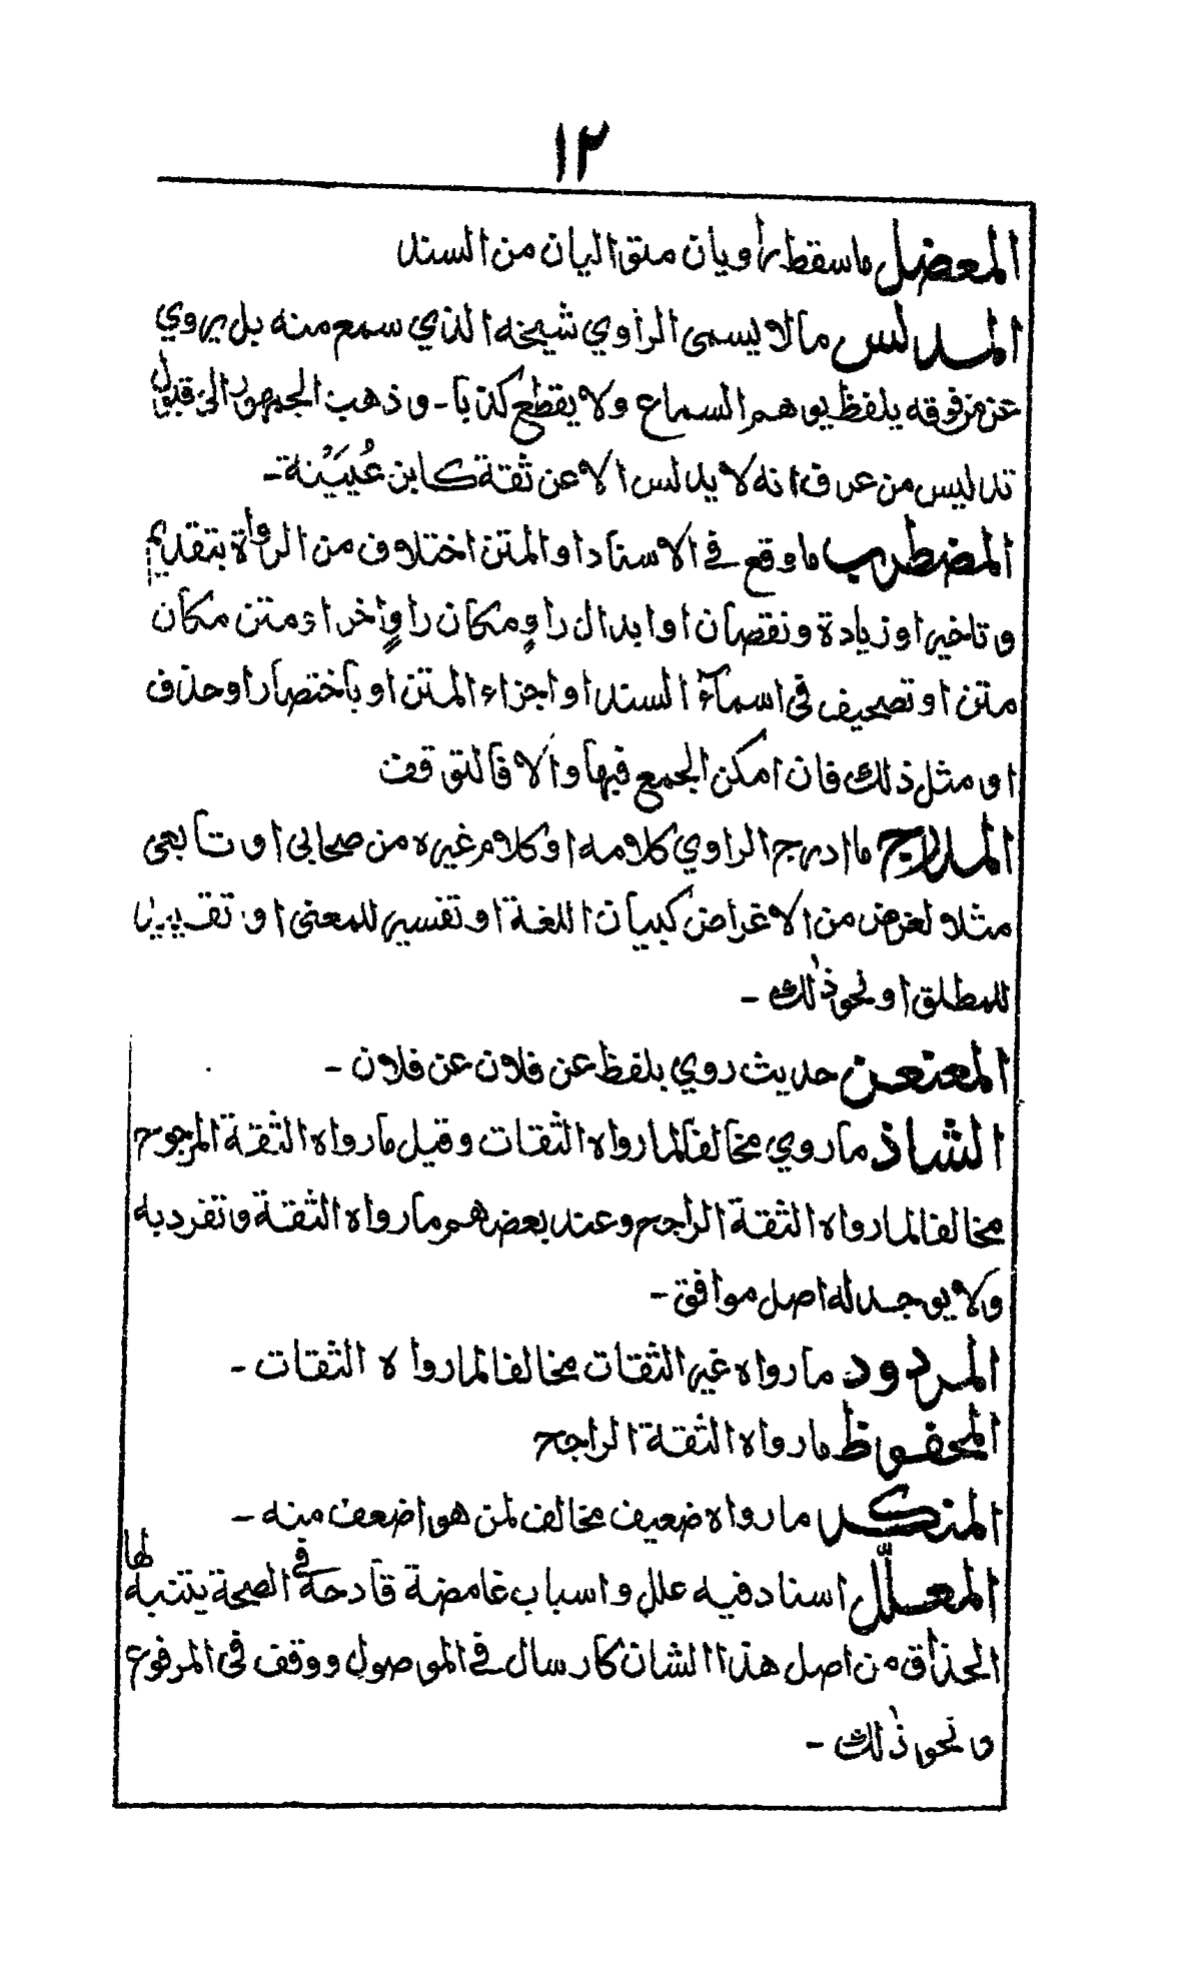 ١٢
المعضل ما سقط راويان متواليان من السند
المدلس ما لا يسمى الراوي شيخه الذي سمع منه بل يروي
عن من فوقه بلفظ يوهم السماع ولا يقطع كذبا - وذهب الجمهور الى قبول
تدليس من عرف انه لا يدلس الا عن ثقة كابن عُيَيْنة -
المضطرب ما وقع في الاسناد او المتن اختلاف من الرواة بتقديم
و تاخير او زيادة و نقصان او ابدال راوٍ مكان راوٍ اخر او متن مكان
متن او تصحيف في اسمآء السند او اجزاء المتن او باختصار او حذف
او مثل ذلك فان امكن الجمع فبها والا فالتوقف
المدرج ما ادرج الراوي كلامه او كلام غيره من صحابي او تابعي
مثلا لغرض من الاغراض كبيان اللغة او تفسير للمعنى او تقييد
للمطلق او نحو ذٰلك -
المعنعن حديث روي بلفظ عن فلان عن فلان -
الشاذ ما روي مخالفا لما رواه الثقات وقيل ما رواه الثقة المرجوح
مخالفا لما رواه الثقة الراجح وعند بعضهم ما رواه الثقة وتفرد به
ولا يوجد له اصل موافق -
المردود ما رواه غير الثقات مخالفا لما رواه الثقات -
المحفوظ ما رواه الثقة الراجح
المنكر ما رواه ضعيف مخالف لمن هو اضعف منه -
المعلّل اسناد فيه علل و اسباب غامضة قادحة في الصحة يتنبه لها
الحذاق من اصل هذا الشان كارسال في الموصول ووقف في المرفوع
و نحو ذٰلك -